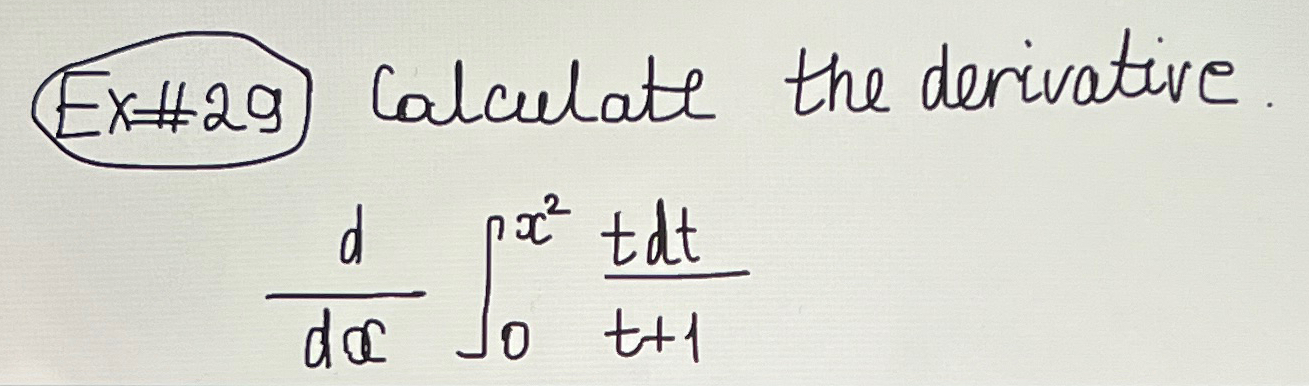 Ex#29 Calculate the derivative.
d/dx ∫₀^x² tdt/t+1